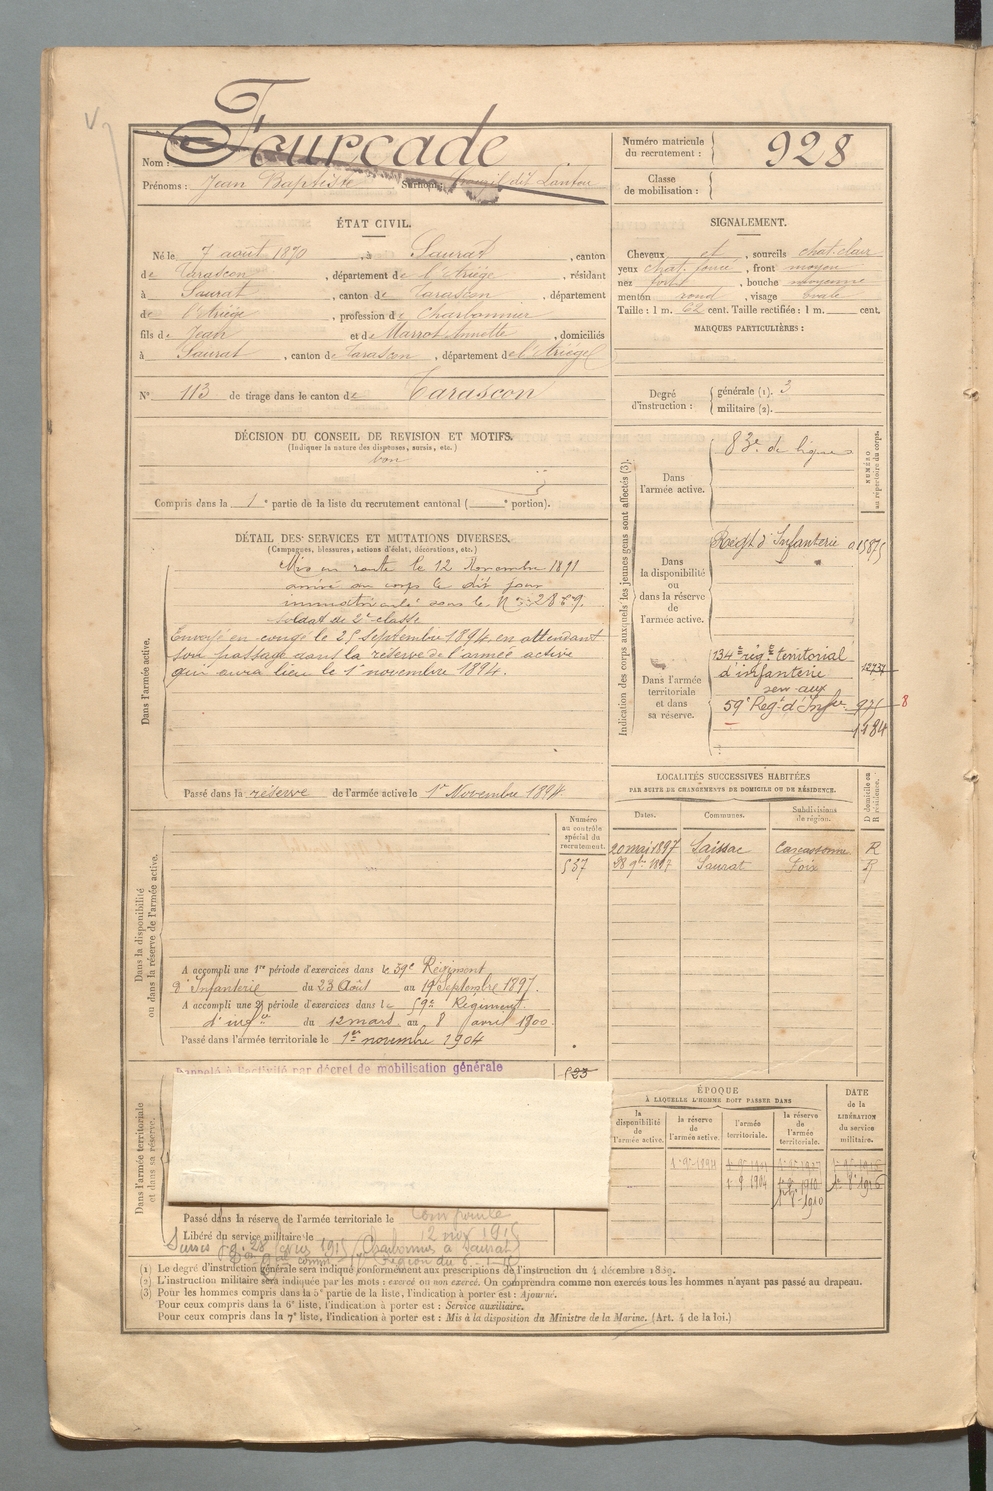 Nom : Fourcade
Prénoms : Jean Baptiste Surnoms : dit Lantou
Numéro matricule du recrutement : 928
Classe de mobilisation :
ÉTAT CIVIL.
Né le 7 août 1870, à Saurat, canton
de Tarascon, département de l'Ariège, résidant
à Saurat, canton de Tarascon, département
de l'Ariège, profession de Charbonnier
fils de Jean et de Marrot Annette, domiciliés
à Saurat, canton de Tarascon, département de l'Ariège
N° 113 de tirage dans le canton de Tarascon
SIGNALEMENT.
Cheveux et, sourcils chat. clair
yeux chat. foncé, front moyen
nez fort, bouche moyenne
menton rond, visage ovale
Taille : 1 m. 62 cent. Taille rectifiée : 1 m. cent.
MARQUES PARTICULIÈRES :
Degré d'instruction : générale (1). 3
militaire (2).
DÉCISION DU CONSEIL DE REVISION ET MOTIFS.
(Indiquer la nature des dispenses, sursis, etc.)
bon
Compris dans la 1e partie de la liste du recrutement cantonal ( e portion).
DÉTAIL DES SERVICES ET MUTATIONS DIVERSES.
(Campagnes, blessures, actions d'éclat, décorations, etc.)
Dans l'armée active.
Mis en route le 12 Novembre 1891
arrivé au corps le dit jour
immatriculé sous le N°
soldat de 2e classe
Envoyé en congé le 25 Septembre 1894, en attendant
son passage dans la réserve de l'armée active
qui aura lieu le 1er novembre 1894.
Passé dans la réserve de l'armée active le 1er Novembre 1894.
Indication des corps auxquels les jeunes gens sont affectés (3).
NUMÉRO au répertoire du corps.
Dans l'armée active.
83e de ligne
Dans la disponibilité ou dans la réserve de l'armée active.
Régt d'Infanterie 01587
Dans l'armée territoriale et dans sa réserve.
134e rég.t territorial
d'infanterie 12737
serv. aux
59e Reg.t d'Infie 975 8
1184
LOCALITÉS SUCCESSIVES HABITÉES
PAR SUITE DE CHANGEMENTS DE DOMICILE OU DE RÉSIDENCE.
D domicile ou R résidence.
Dates. Communes. Subdivisions de région.
20 mai 1897 Saissac Carcassonne R
28 9bre 1897 Saurat Foix R
Dans la disponibilité ou dans la réserve de l'armée active.
Numéro au contrôle spécial du recrutement.
537
A accompli une 1re période d'exercices dans le 59e Régiment
d'Infanterie du 23 Août au 19 Septembre 1897.
A accompli une 2e période d'exercices dans le 59e Régiment
d'infrie du 12 mars au 8 avril 1900.
Passé dans l'armée territoriale le 1er novembre 1904
Dans l'armée territoriale et dans sa réserve.
Rappelé à l'activité par décret de mobilisation générale
523
ÉPOQUE
À LAQUELLE L'HOMME DOIT PASSER DANS
la disponibilité de l'armée active.
la réserve de l'armée active.
l'armée territoriale.
la réserve de l'armée territoriale.
DATE de la LIBÉRATION du service militaire.
1 9 1904
1 8 1910
Passé dans la réserve de l'armée territoriale le
Libéré du service militaire le
Sursis (Charbonnier à Saurat)
(1) Le degré d'instruction générale sera indiqué conformément aux prescriptions de l'instruction du 4 décembre 1889.
(2) L'instruction militaire sera indiquée par les mots : exercé ou non exercé. On comprendra comme non exercés tous les hommes n'ayant pas passé au drapeau.
(3) Pour les hommes compris dans la 5e partie de la liste, l'indication à porter est : Ajourné.
Pour ceux compris dans la 6e liste, l'indication à porter est : Service auxiliaire.
Pour ceux compris dans la 7e liste, l'indication à porter est : Mis à la disposition du Ministre de la Marine. (Art. 4 de la loi.)